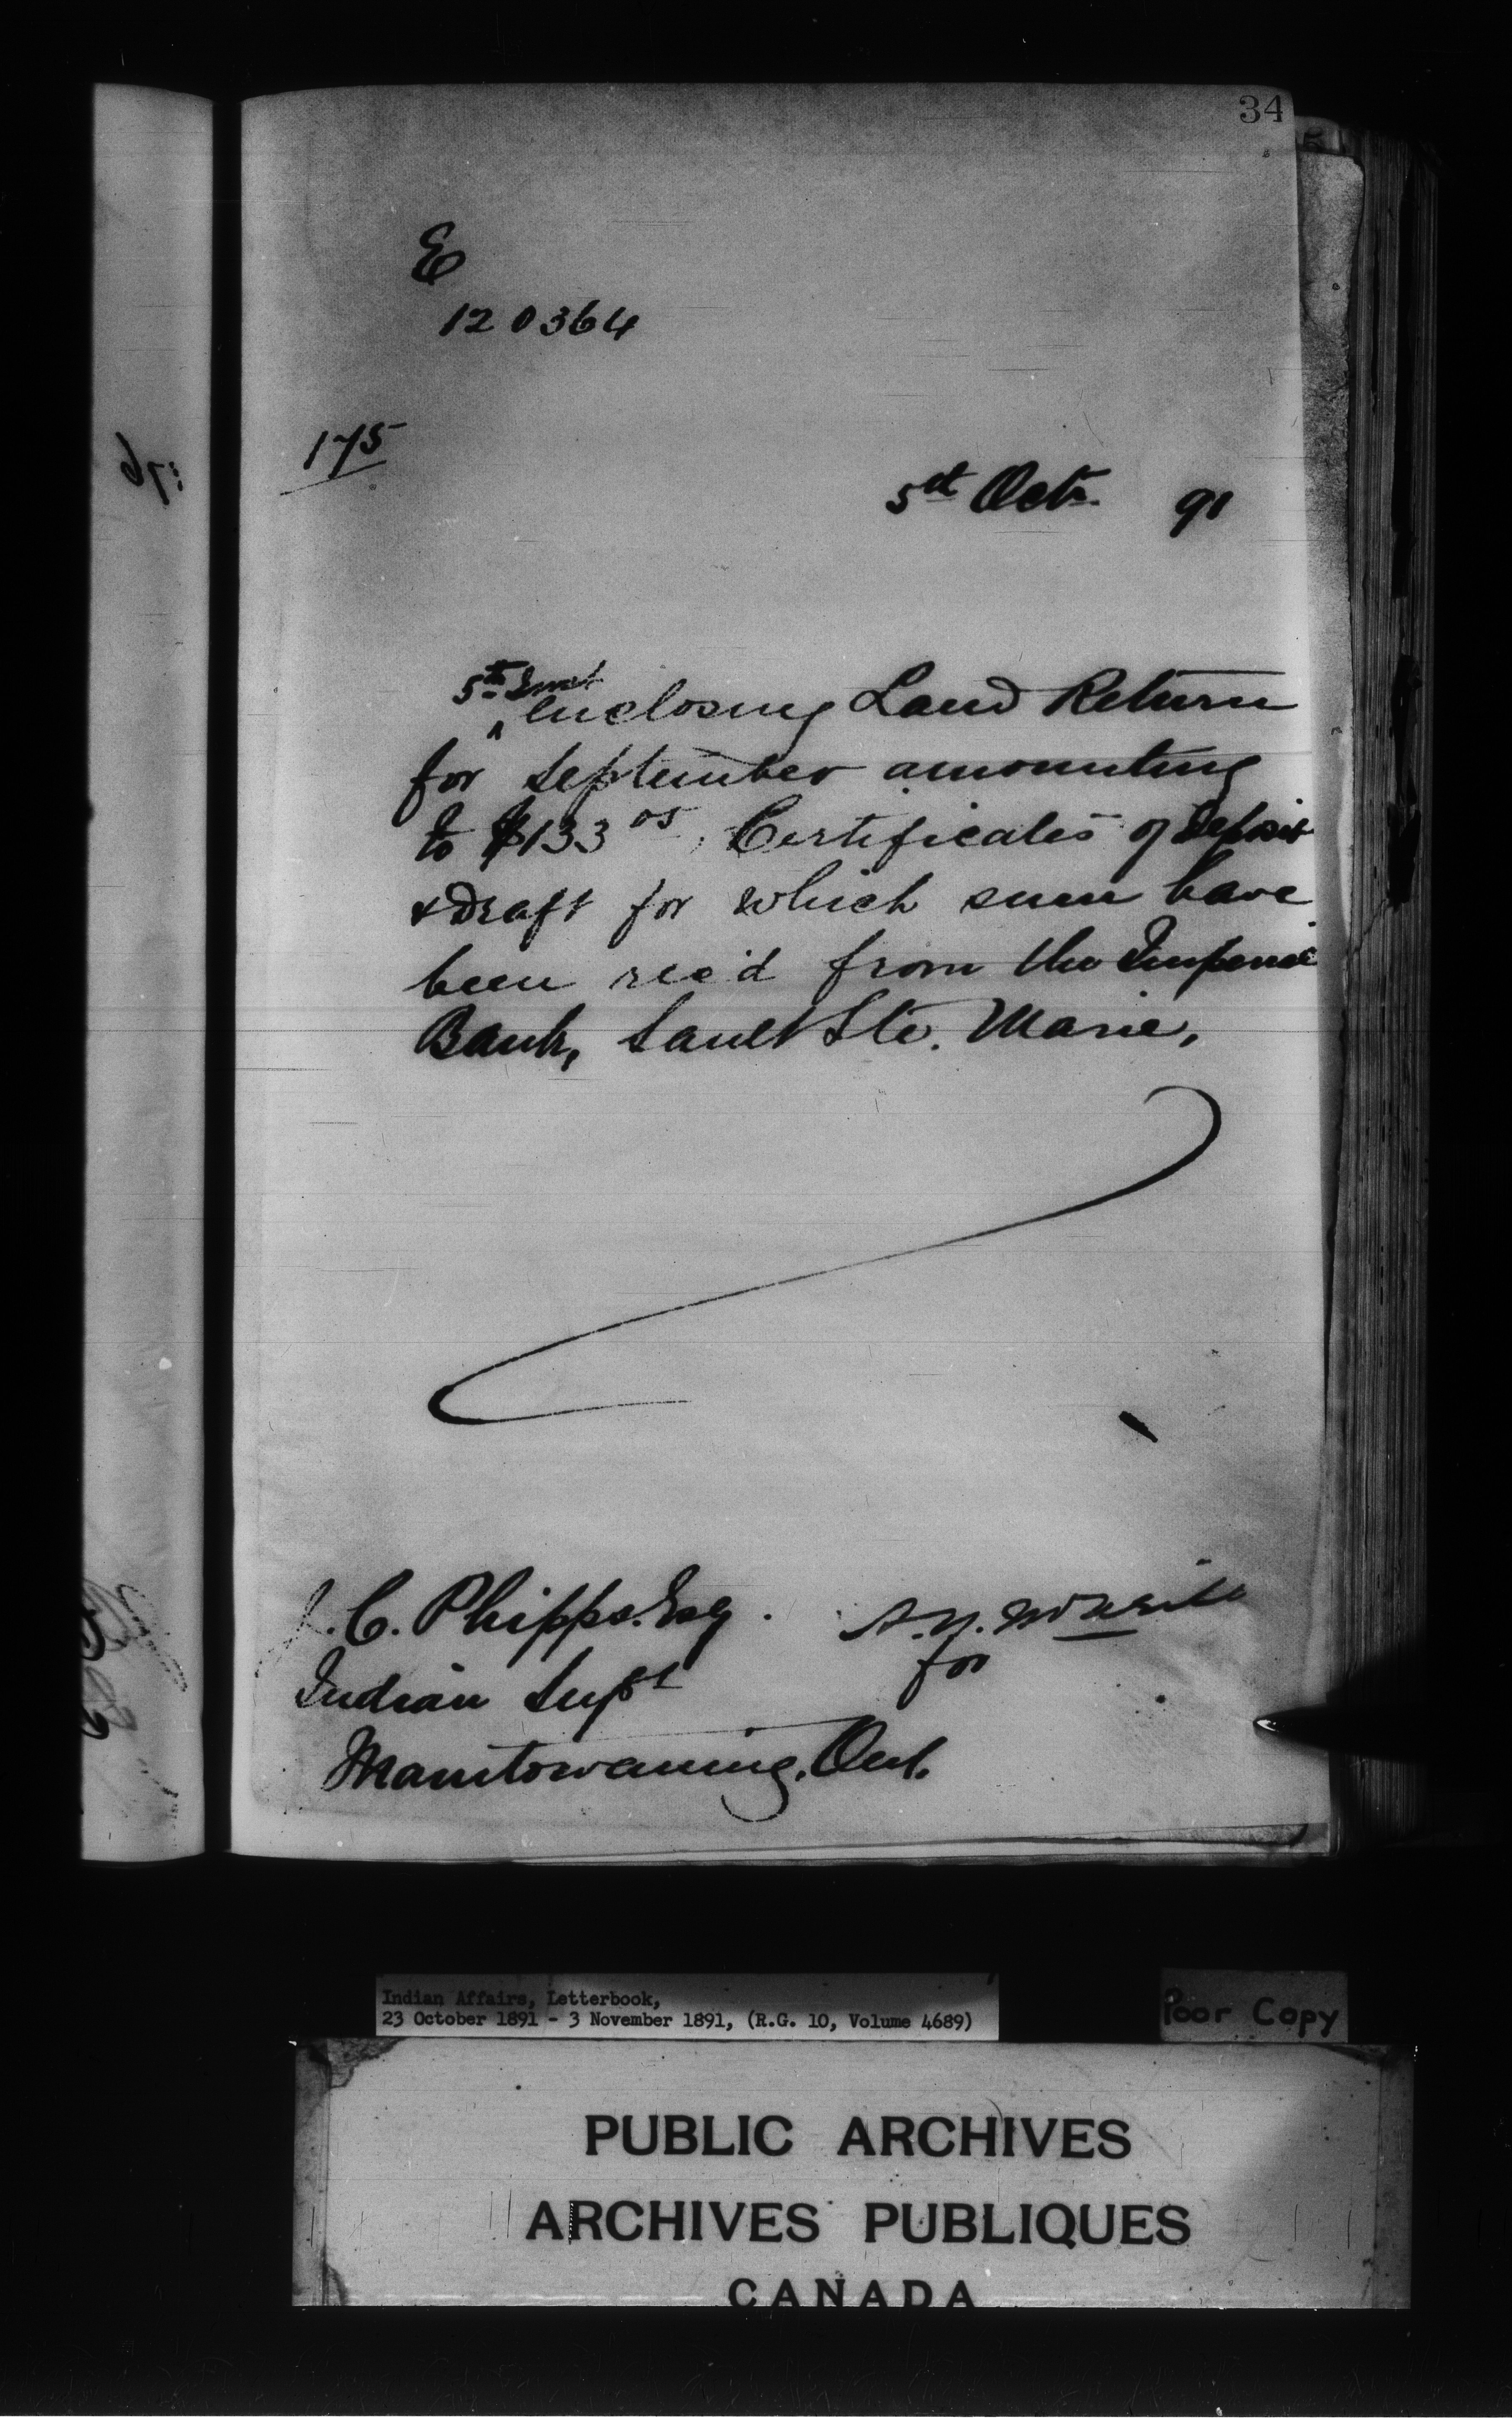 34
E
120364
175
5th Octr. 91
5th Inst
enclosing Land Return
for September amounting
to $133 05, Certificates of Deposit
& Draft for which sum have
been rec'd from the Imperial
Bank, Sault Ste. Marie,
J. C. Phipps. Esq.
Indian Supt
Manitowaning, Ont.
for
Indian Affairs, Letterbook,
23 October 1891 - 3 November 1891, (R.G. 10, Volume 4689)
Poor Copy
PUBLIC ARCHIVES
ARCHIVES PUBLIQUES
CANADA